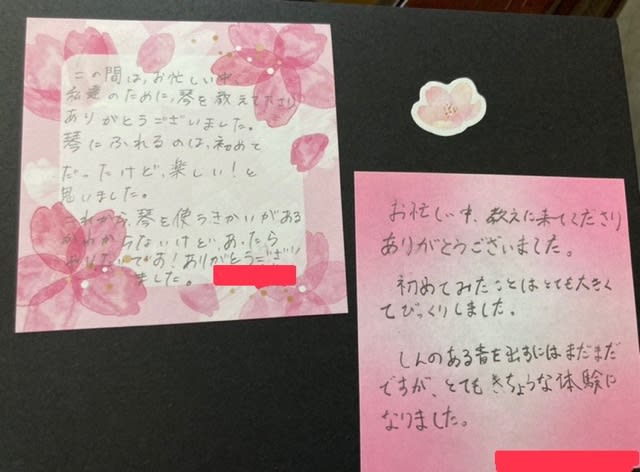 この間は、お忙しい中
私達のために、琴を教えて下さり
ありがとうございました。
琴にふれるのは、初めて
だったけど、楽しい!と
思いました。
これから、琴を使うきかいがある
かわからないけど、あったら
やりたいです!ありがとうござい
ました。
お忙しい中、教えに来てくださり
ありがとうございました。
初めてみたことはとても大きく
てびっくりしました。
しんのある音を出すにはまだまだ
ですが、とてもきちょうな体験に
なりました。